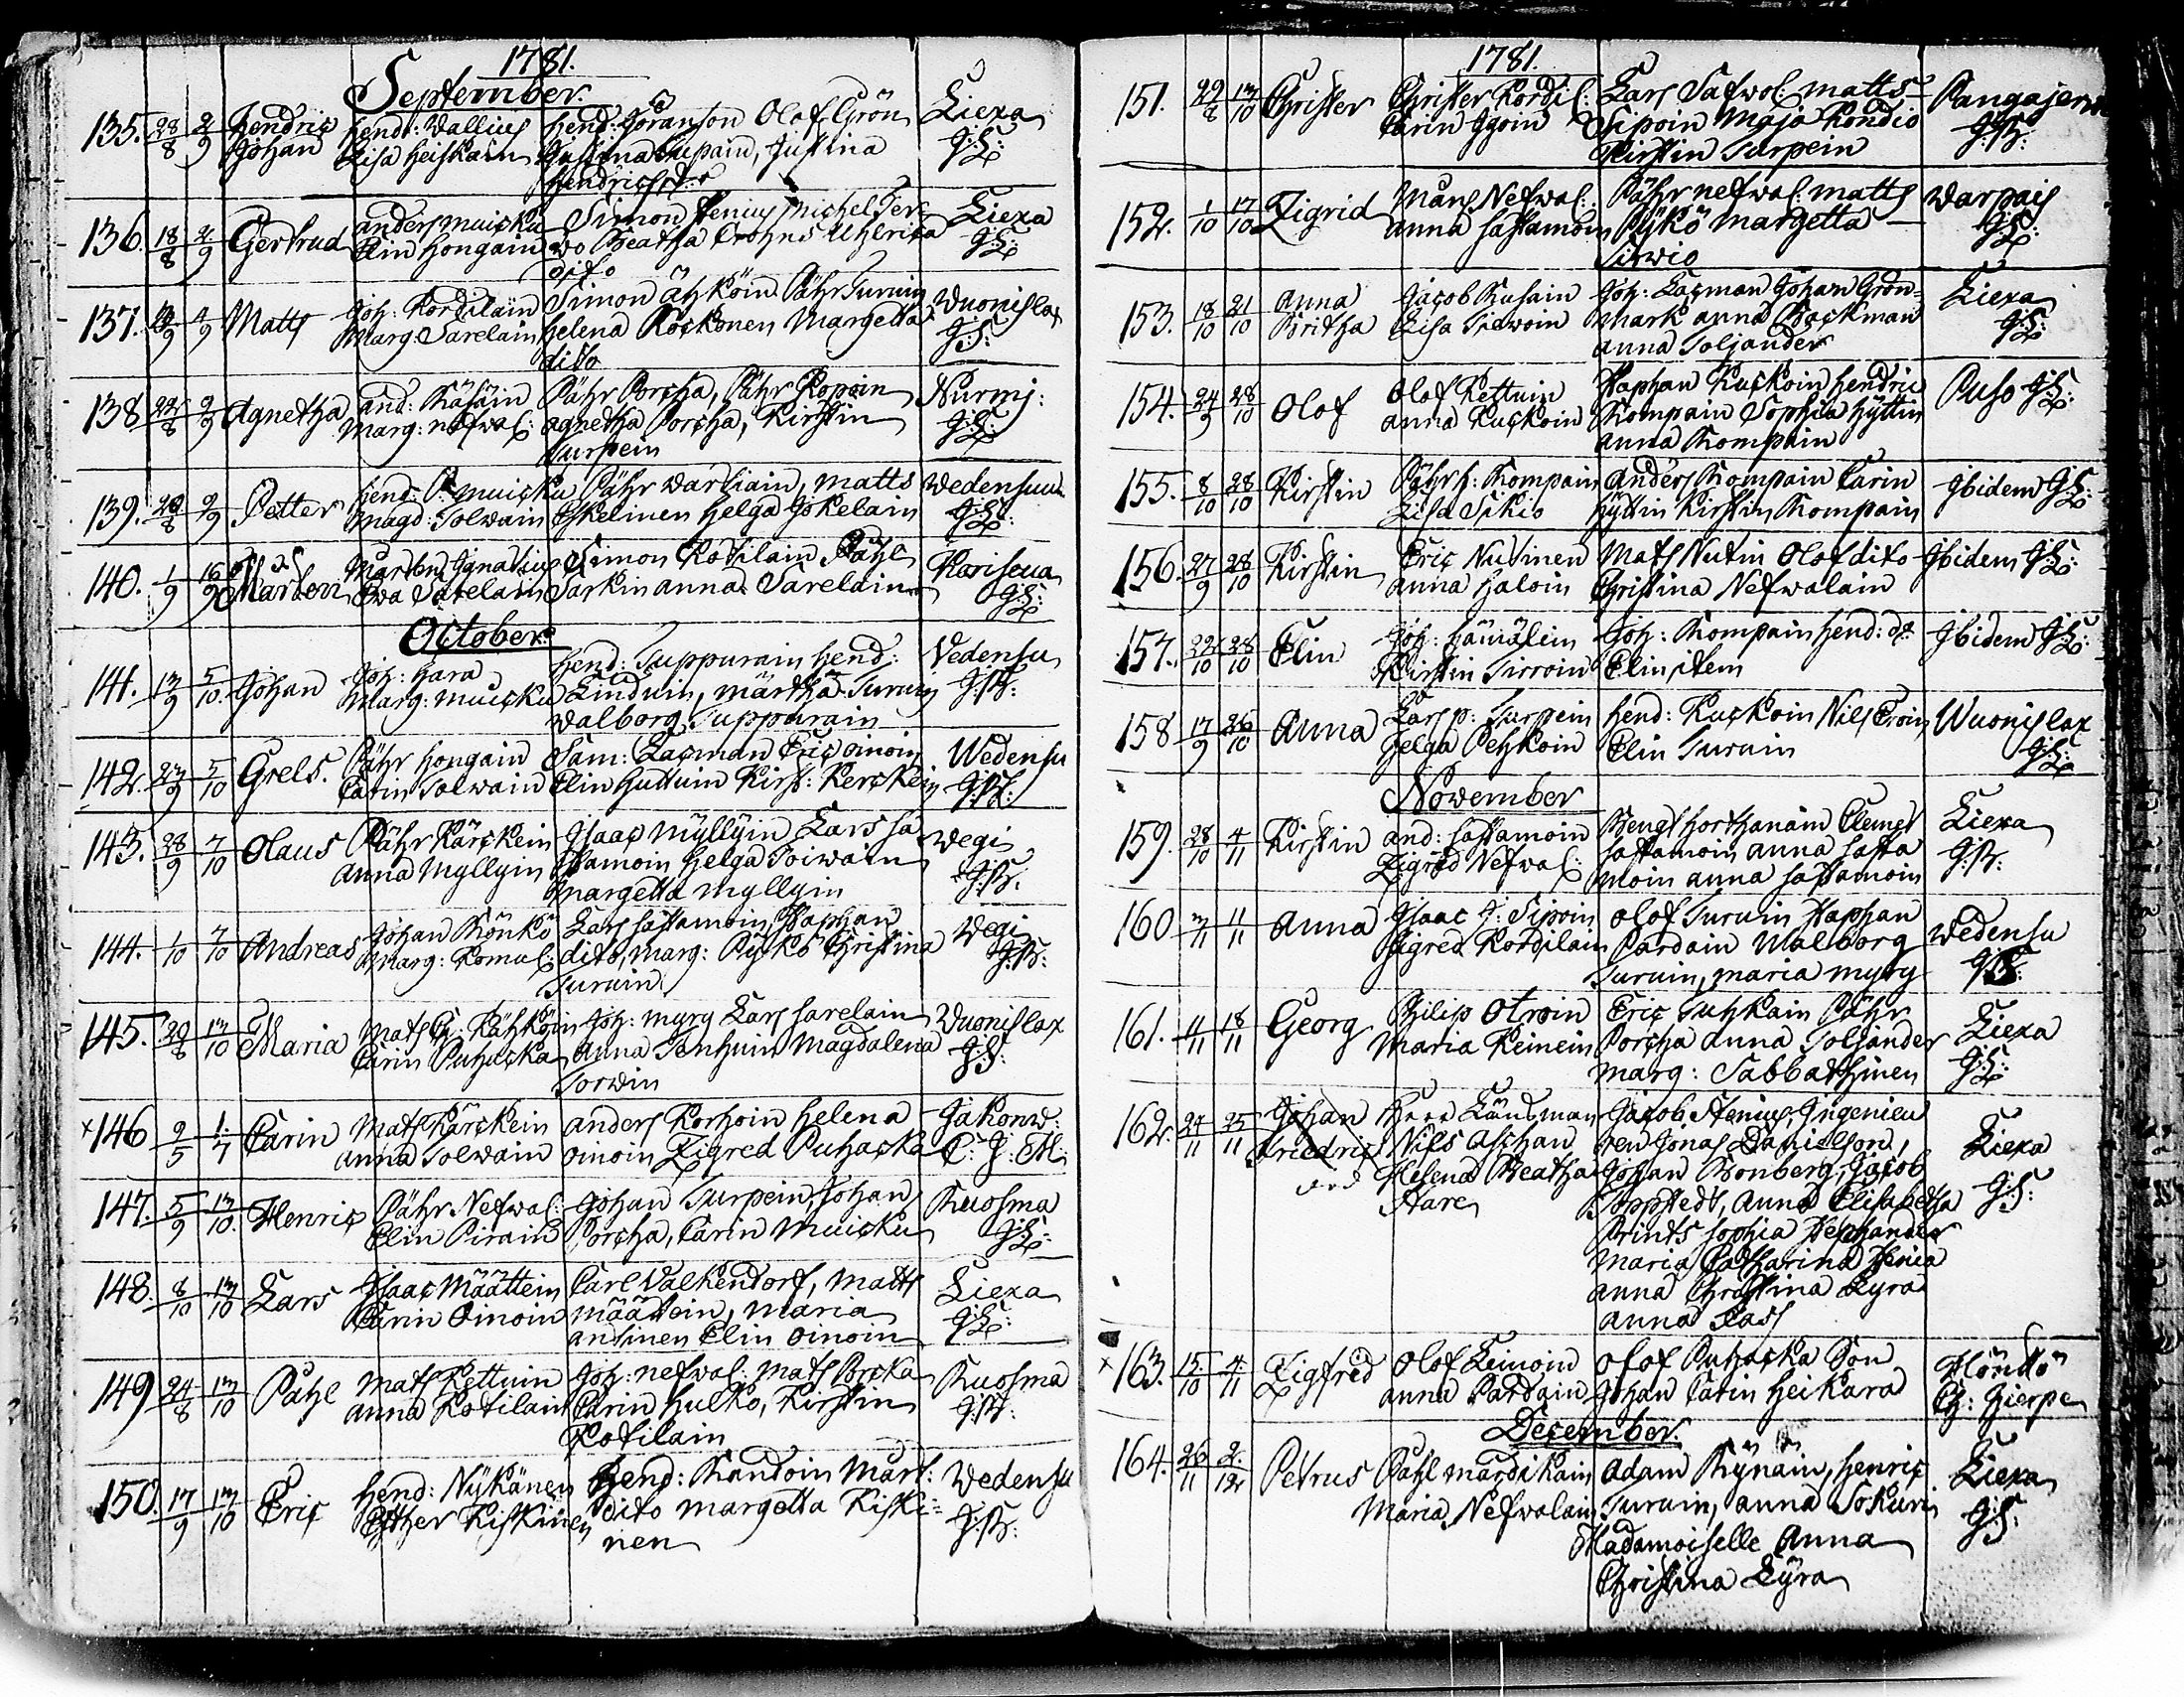 1781.
September.
135. 28/8 2/9 Hendric Johan Hend: Wallius Lisa Heiskain Hend: Göranson Olof Grön Justina Hendrichsdr Liexa
136. 18/8 2/9 Gertrud anders muicku Elin Hongain Simon Stenius Michel Ter= wo Beatha Crohns Ulhrica dito Liexa
137. 4/9 Matts Joh: Kortilain Marg: Sarelain Simon Ähköin Påhr Turuin Helena Kockonen Margetta dito Wuonislax
138 22/8 2/9 Agnetha and: Räsäin Marg: nefwal: Påhr Porcha, Påhr Ropoin agnetha Porcha, Kirstin Turpein Nurmj:
139. 28/8 2/9 Petter Hend: P: muicku Magd: Tolwain Påhr Wartiain, matts Eskelinen Helga Jokelain Wedensuu
140. 1/9 16/9 Mårten Mårten Ignatius Ewa Sarelain Simon Kotilain Påhl Sarkin anna Sarelain Karisena
October.
141. 13/9 5/10. Johan Joh: Hara Marg: muicku Hend: Tuppurain Hend: Linduin, märtha Turuin Walborg Tuppurain Vedensu
142. 23/9 5/10 Grels. Påhr Hongain Carin Tolwain Sam: Lacman Eric oinoin Elin Huttuin Kirst: Kerckein Wedensu
143. 28/9 7/10 Olaus Påhr Kärckein Anna Myllyin Isaac Myllyin Lars Sa stamoin Helga Toiwain Margetta Myllyin Wegi
144. 1/10 7/10 Andreas Johan Könkö Marg: Romul: Lars Sastamoin, Staphan dito, Marg: Pyckö Christina Turuin Wegi
145. 29/8 13/10 Maria Mats Ch: Kähköin Carin Puhacka Joh: myrg Lars Sarelain Anna Tanhuin Magdalena Torwin Wuonislax
146 9/5 1/7 Carin Mats Kärckein anna Tolwain anders Korhoin Helena oinoin Zigred Puhacka Jakonw: C: J: M:
147. 5/9 13/10. Henric Påhr Nefwal: Elin Pirain Johan Turpein, Johan Porcha, Carin Muicku Kuosma
148. 8/10 13/10 Lars Isaac Määttein Carin Oinoin Carl Valkendorf, Matts Määttein, Maria antinen Elin Oinoin Liexa
149 24/8 13/10 Påhl Mats Kettuin anna Kotilain Joh: nefwal: Mats Porka Carin Hulko, Kirstin Kotilain Kuosma
150. 17/9 13/10 Eric Hend: Nykänen Esther Kiskinen Hend: Kandoin Mart: dito Margetta Kiski= nen Wedensu
1781.
151. 29/8 13/10 Christer Christer Kortil: Carin Igoin Lars Safwol: matts Sipoin Maja Kondio Kirstin Turpein Pangajerw
152. 1/10 17/10 Zigrid Måns Nefwal: anna Sastamoin Påhr nefwal: matts Pyckö Margetta Sirwio Warpais
153. 18/10 21/10 Anna Britha Jacob Kusain Lisa Siowoin Joh: Lacman Johan Grön= Mark anna Backman anna Toljander Liexa
154. 24/9 28/10 Olof Olof Kettuin Anna Kuckoin Staphan Kuckoin Hendric Kompain Sophia Hyttin anna Kompain Puso
155. 8/10 28/10 Kirstin Påhr H: Kompain Lisa Sikio Anders Kompain Carin Hyttin Kirstin Kompain Ibidem
156. 27/9 28/10 Kirstin Eric Nutinen anna Haloin Mats Nutin Olof dito Christina Nefwalain Ibidem
157. 22/10 28/10 Elin Joh: Hämälein Kirstin Tirroin Joh: Kompain Hend: do Elin item Ibidem
158 17/9 26/10 Anna Lars p: Turpein Helga Pehkoin Hend: Kuckoin Nils Eroin Elin Turuin Wuonislax
November
159. 28/10 4/11 Kirstin and: Sastamoin Zigred Nefwal: Bengt Horthanain Clemet Sastamoin anna Sasta moin anna Sastamoin Liexa
160 3/11 11/11 Anna Isaac J: Sipoin Sigred Kortilain Olof Turuin Staphan Pardain Walborg Turuin, maria myrg Wedensu
161. 11/11 18/11 Georg Philip Otroin Maria Keinein Eric Tuhkain Påhr Porcha Anna Toljander Marg: Sabbathinen Liexa
162. 24/11 25/11 Johan Friedric Herr Länsman Nils Aschan Helena Beatha Hare Jacob Stenius, Ingenieu ren Jonas Danielson, Johan Bonberg, Jacob Toppstedt, Anna Elisabetha Prints Sophia Stephander Maria Catharina Stenia anna Christina Lyra anna Rass Liexa
163. 15/10 4/11 Zigfrid Olof Leinoin anna Pardain Olof Puhacka Son Johan Carin Heikara Höndtö Ch: Hierpe
December.
164. 26/11 2/12 Petrus Påhl Mardikain Maria Nefwalain Adam Kynäin, Henric Turuin, anna Sokurin Madamoiselle Anna Christina Lyra Liexa